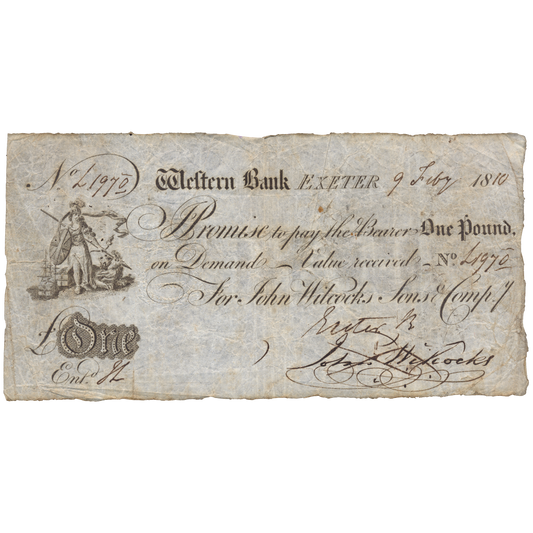 No L1970 Western Bank EXETER 9 Feby 1810
I Promise to pay the Bearer One Pound.
on Demand Value received No L1970
For John Wilcocks Sons & Comp.y
£One
Entd
Wilcocks